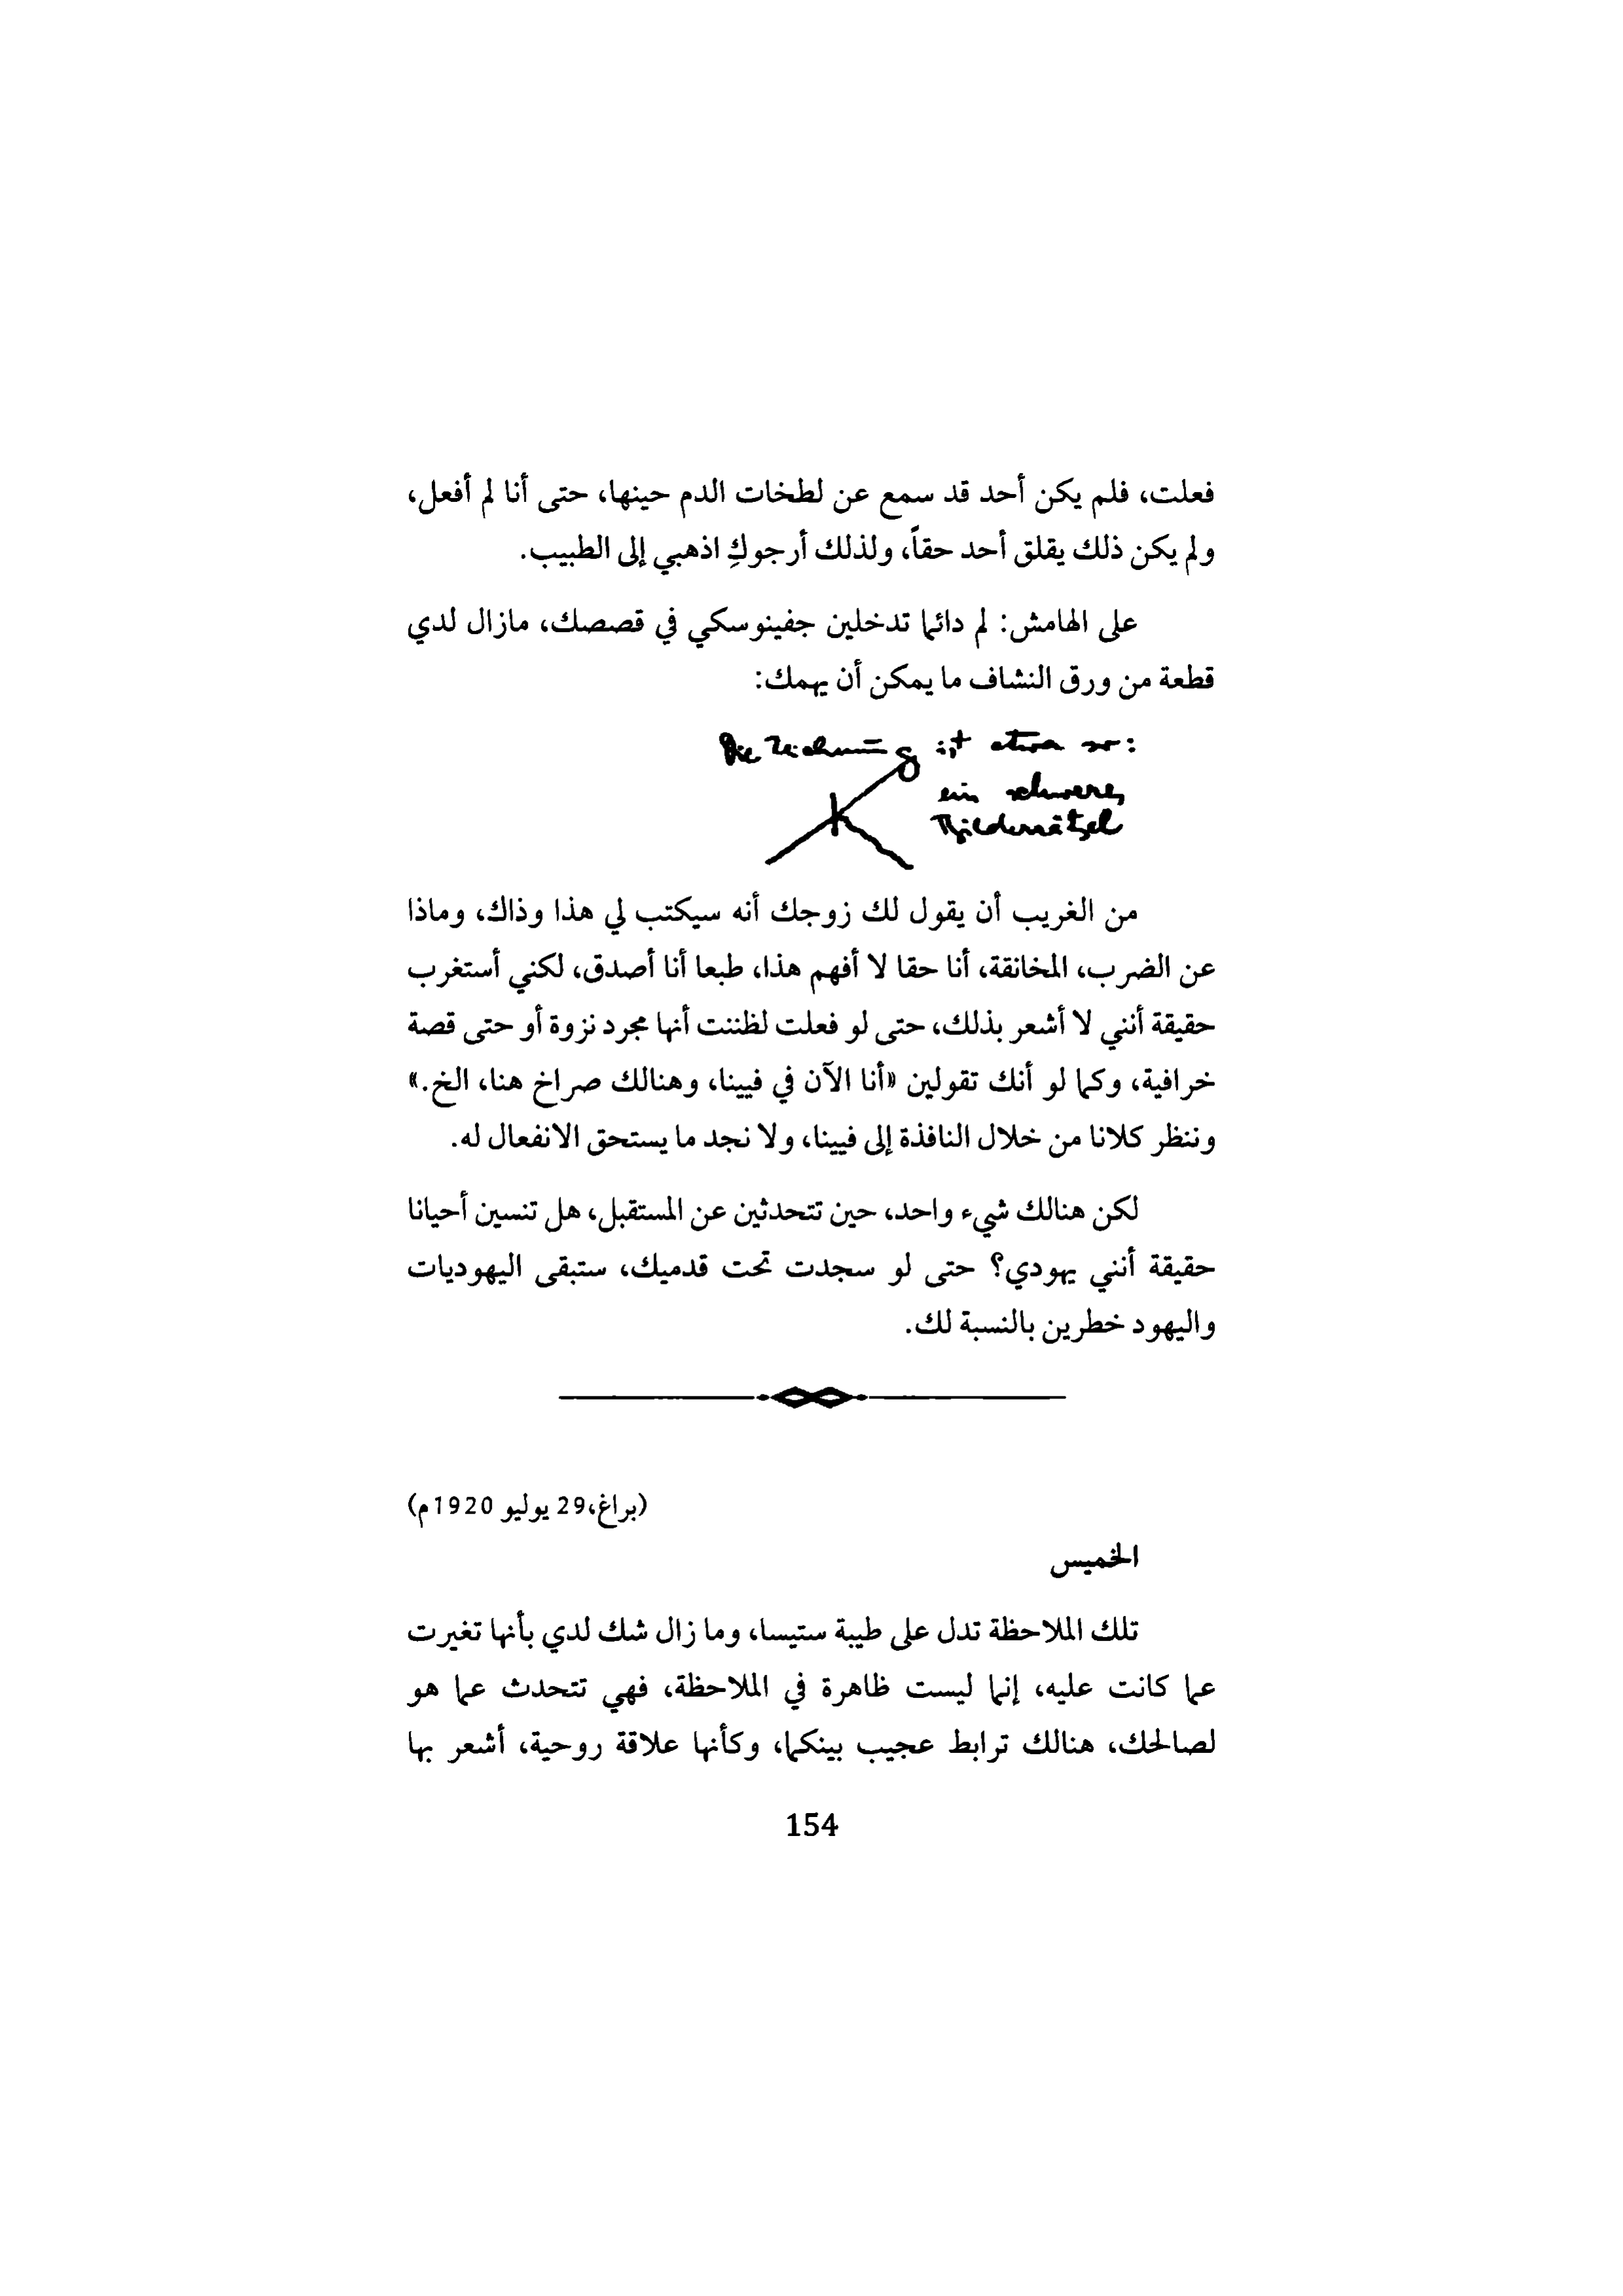 فعلت، فلم يكن أحد قد سمع عن لطخات الدم حينها، حتى أنا لم أفعل،
ولم يكن ذلك يقلق أحد حقاً، ولذلك أرجوكِ اذهبي إلى الطبيب.
على الهامش: لم دائما تدخلين جفينوسكي في قصصك، مازال لدي
قطعة من ورق النشاف ما يمكن أن يهمك:
Die Zeichnung ist etwa so:
ein schweres
Bilderrätsel
من الغريب أن يقول لك زوجك أنه سيكتب لي هذا وذاك، وماذا
عن الضرب، المخانقة، أنا حقا لا أفهم هذا، طبعا أنا أصدق، لكني أستغرب
حقيقة أنني لا أشعر بذلك، حتى لو فعلت لظننت أنها مجرد نزوة أو حتى قصة
خرافية، وكما لو أنك تقولين «أنا الآن في فيينا، وهنالك صراخ هنا، الخ.»
وننظر كلانا من خلال النافذة إلى فيينا، ولا نجد ما يستحق الانفعال له.
لكن هنالك شيء واحد، حين تتحدثين عن المستقبل، هل تنسين أحيانا
حقيقة أنني يهودي؟ حتى لو سجدت تحت قدميك، ستبقى اليهوديات
واليهود خطرين بالنسبة لك.
(براغ،29 يوليو 1920م)
الخميس
تلك الملاحظة تدل على طيبة ستيسا، وما زال شك لدي بأنها تغيرت
عما كانت عليه، إنما ليست ظاهرة في الملاحظة، فهي تتحدث عما هو
لصالحك، هنالك ترابط عجيب بينكما، وكأنها علاقة روحية، أشعر بها
154